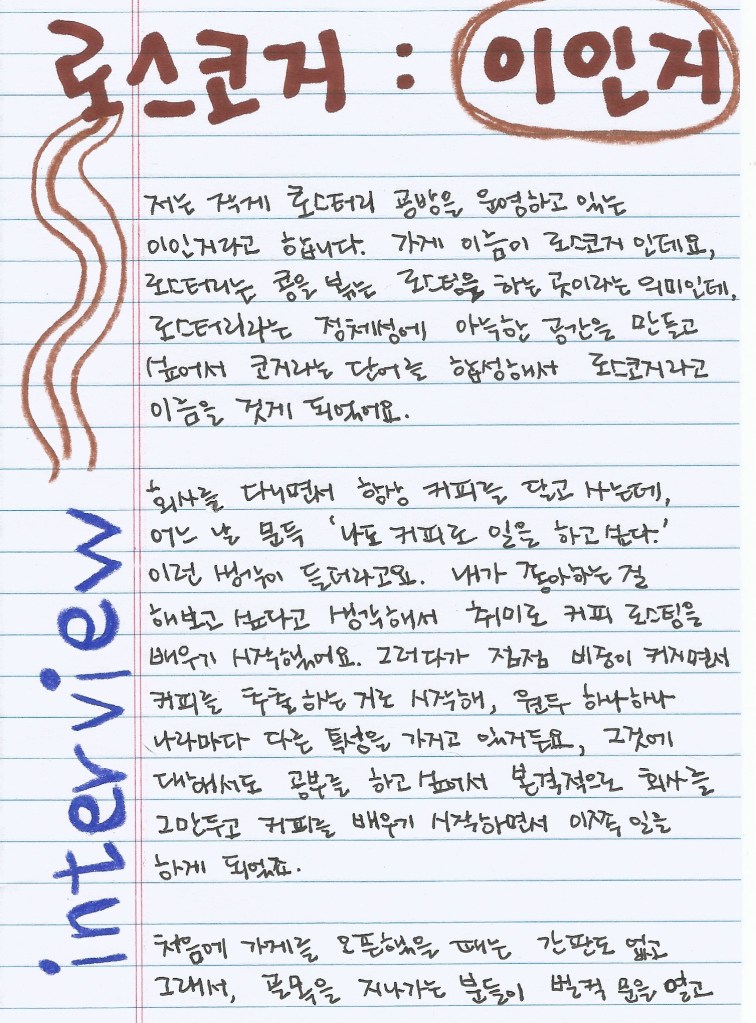 로스코지 : 이인지
저는 작게 로스터리 공방을 운영하고 있는
이인지라고 합니다. 가게 이름이 로스코지인데요,
로스터리는 콩을 볶는 로스팅을 하는 곳이라는 의미인데,
로스터리라는 정체성에 아늑한 공간을 만들고
싶어서 코지라는 단어를 합성해서 로스코지라고
이름을 짓게 되었어요.
interview
회사를 다니면서 항상 커피를 달고 사는데,
어느 날 문득 '나도 커피로 일을 하고 싶다.'
이런 생각이 들더라고요. 내가 좋아하는 걸
해보고 싶다고 생각해서 취미로 커피 로스팅을
배우기 시작했어요. 그러다가 점점 비중이 커지면서
커피를 추출하는 거로 시작해, 원두 하나하나
나라마다 다른 특성을 가지고 있거든요, 그것에
대해서도 공부를 하고 싶어서 본격적으로 회사를
그만두고 커피를 배우기 시작하면서 이쪽 일을
하게 되었죠.
처음에 가게를 오픈했을 때는 간판도 없고
그래서, 골목을 지나가는 분들이 벌컥 문을 열고